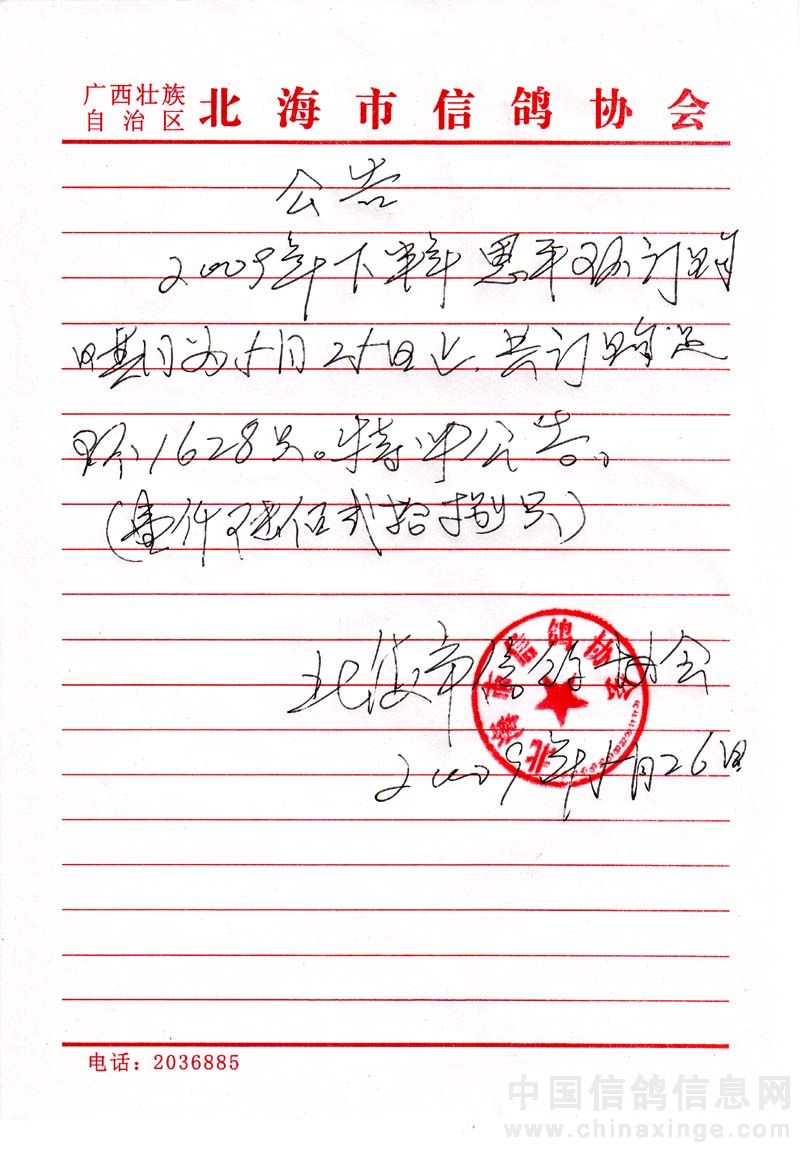 广西壮族
自治区
北海市信鸽协会
公告
2009年下半年恩平环订购
日期为十月 日止，共订购足
环1628只。特此公告。
（壹仟陆佰贰拾捌只）
北海市信鸽协会
2009年十月26日
北海市信鸽协会
电话：2036885
中国信鸽信息网
www.chinaxinge.com